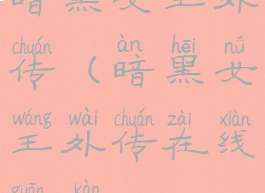 暗黑女王外
chuán àn hēi nǚ
传（暗黑女
wáng wài chuán zài xiàn
王外传在线
guān kàn